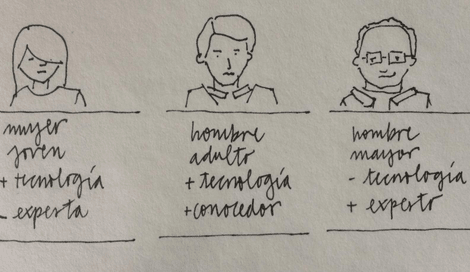 mujer
joven
+ tecnología
- experta
hombre
adulto
+ tecnología
+ conocedor
hombre
mayor
- tecnología
+ experto